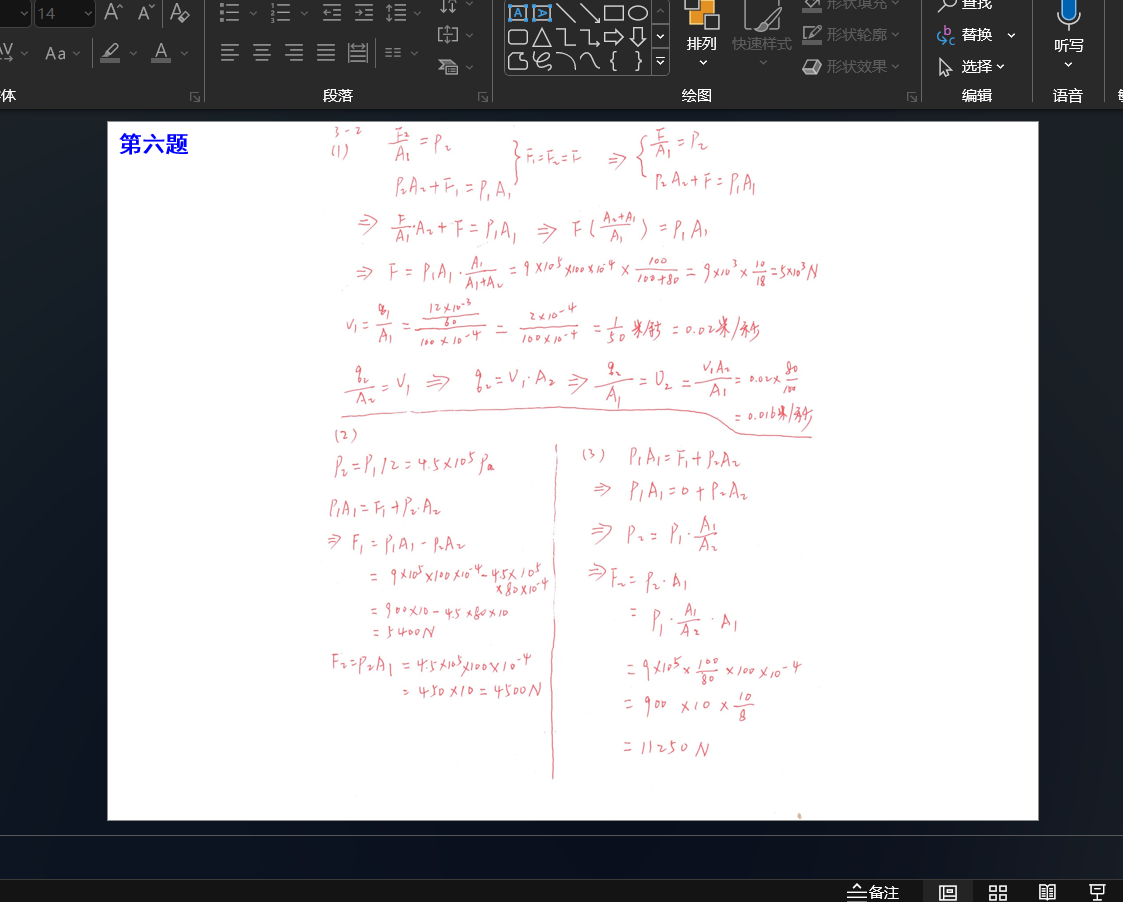 14
Aa
A
体
段落
排列
快速样式
形状填充
形状轮廓
形状效果
绘图
查找
替换
选择
编辑
听写
语音
第六题
3-2
(1) F₂/A₁ = P₂
P₂A₂ + F₁ = P₁A₁ } F₁ = F₂ = F ⇒ { F/A₁ = P₂
P₂A₂ + F = P₁A₁
⇒ F/A₁·A₂ + F = P₁A₁ ⇒ F((A₂+A₁)/A₁) = P₁A₁
⇒ F = P₁A₁·A₁/(A₁+A₂) = 9×10⁵×100×10⁻⁴ × 100/(100+80) = 9×10³ × 10/18 = 5×10³N
V₁ = q₁/A₁ = (12×10⁻³/60)/(100×10⁻⁴) = (2×10⁻⁴)/(100×10⁻⁴) = 1/50 米/ = 0.02米/秒
q₂/A₂ = V₁ ⇒ q₂ = V₁·A₂ ⇒ q₂/A₁ = V₂ = V₁A₂/A₁ = 0.02× 80/100
= 0.016米/秒
(2)
P₂ = P₁/2 = 4.5×10⁵ Pa
P₁A₁ = F₁ + P₂·A₂
⇒ F₁ = P₁A₁ - P₂A₂
= 9×10⁵×100×10⁻⁴ - 4.5×10⁵
×80×10⁻⁴
= 900×10 - 4.5×80×10
= 5400N
F₂ = P₂A₁ = 4.5×10⁵×100×10⁻⁴
= 450×10 = 4500N
(3) P₁A₁ = F₁ + P₂A₂
⇒ P₁A₁ = 0 + P₂A₂
⇒ P₂ = P₁·A₁/A₂
⇒ F₂ = P₂·A₁
= P₁·A₁/A₂·A₁
= 9×10⁵×100/80×100×10⁻⁴
= 900×10×10/8
= 11250N
备注